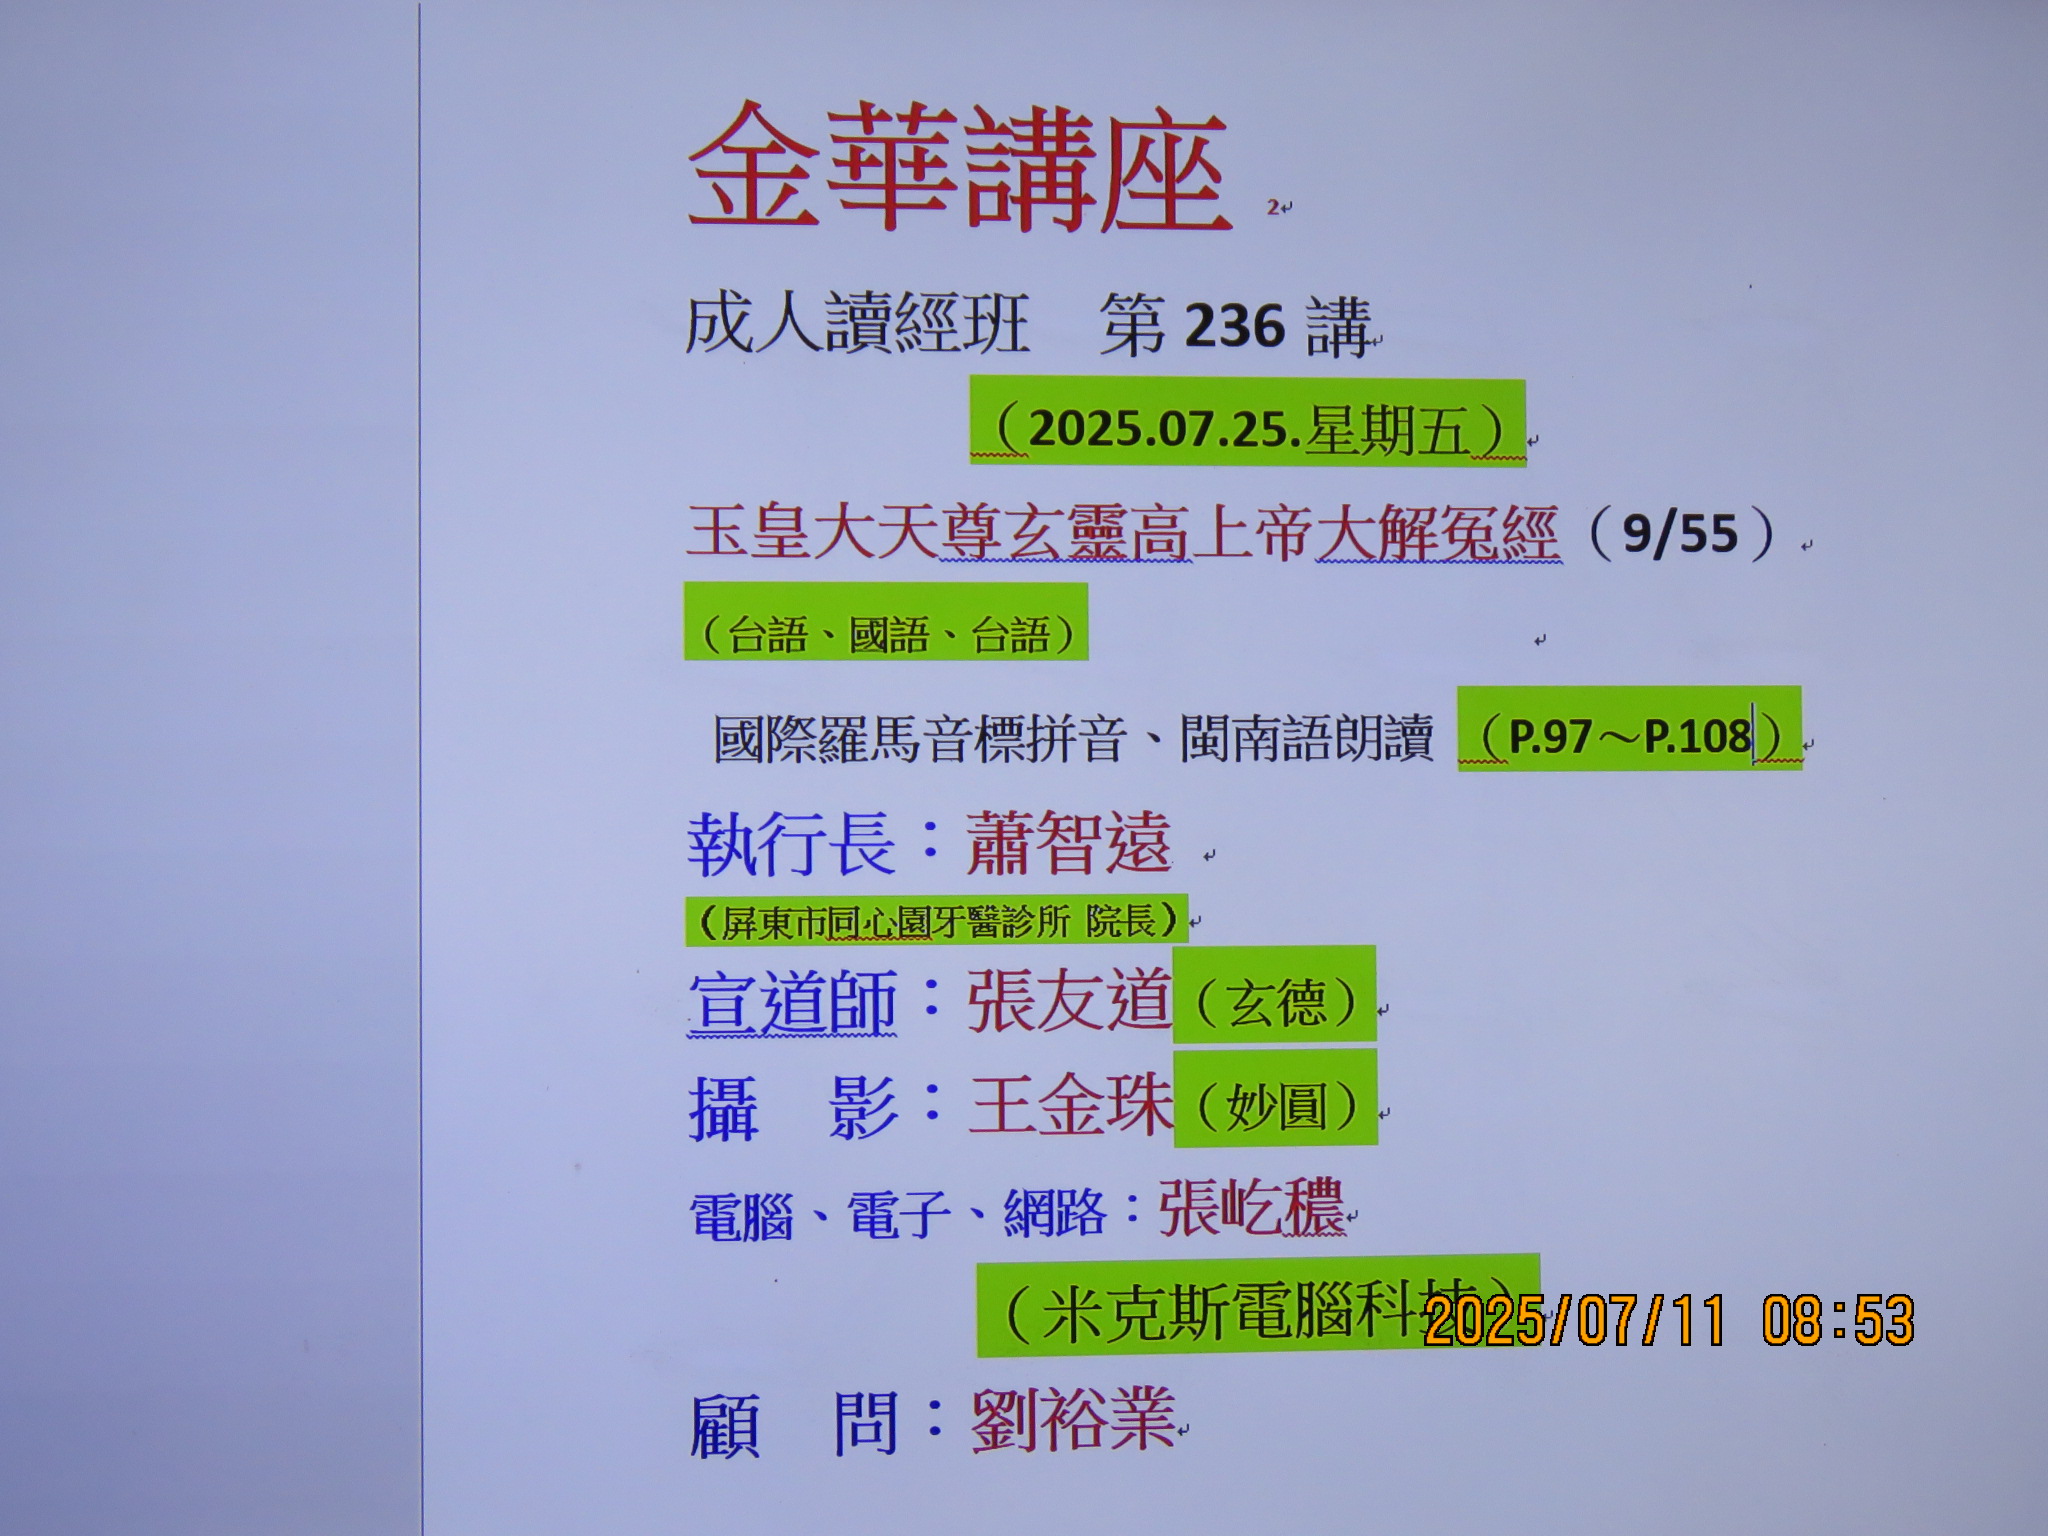 金華講座 2
成人讀經班　第 236 講
（2025.07.25.星期五）
玉皇大天尊玄靈高上帝大解冤經（9/55）
（台語、國語、台語）
國際羅馬音標拼音、閩南語朗讀 （P.97～P.108）
執行長：蕭智遠
（屏東市同心園牙醫診所 院長）
宣道師：張友道（玄德）
攝　影：王金珠（妙圓）
電腦、電子、網路：張屹穠
（米克斯電腦科技）
2025/07/11 08:53
顧　問：劉裕業